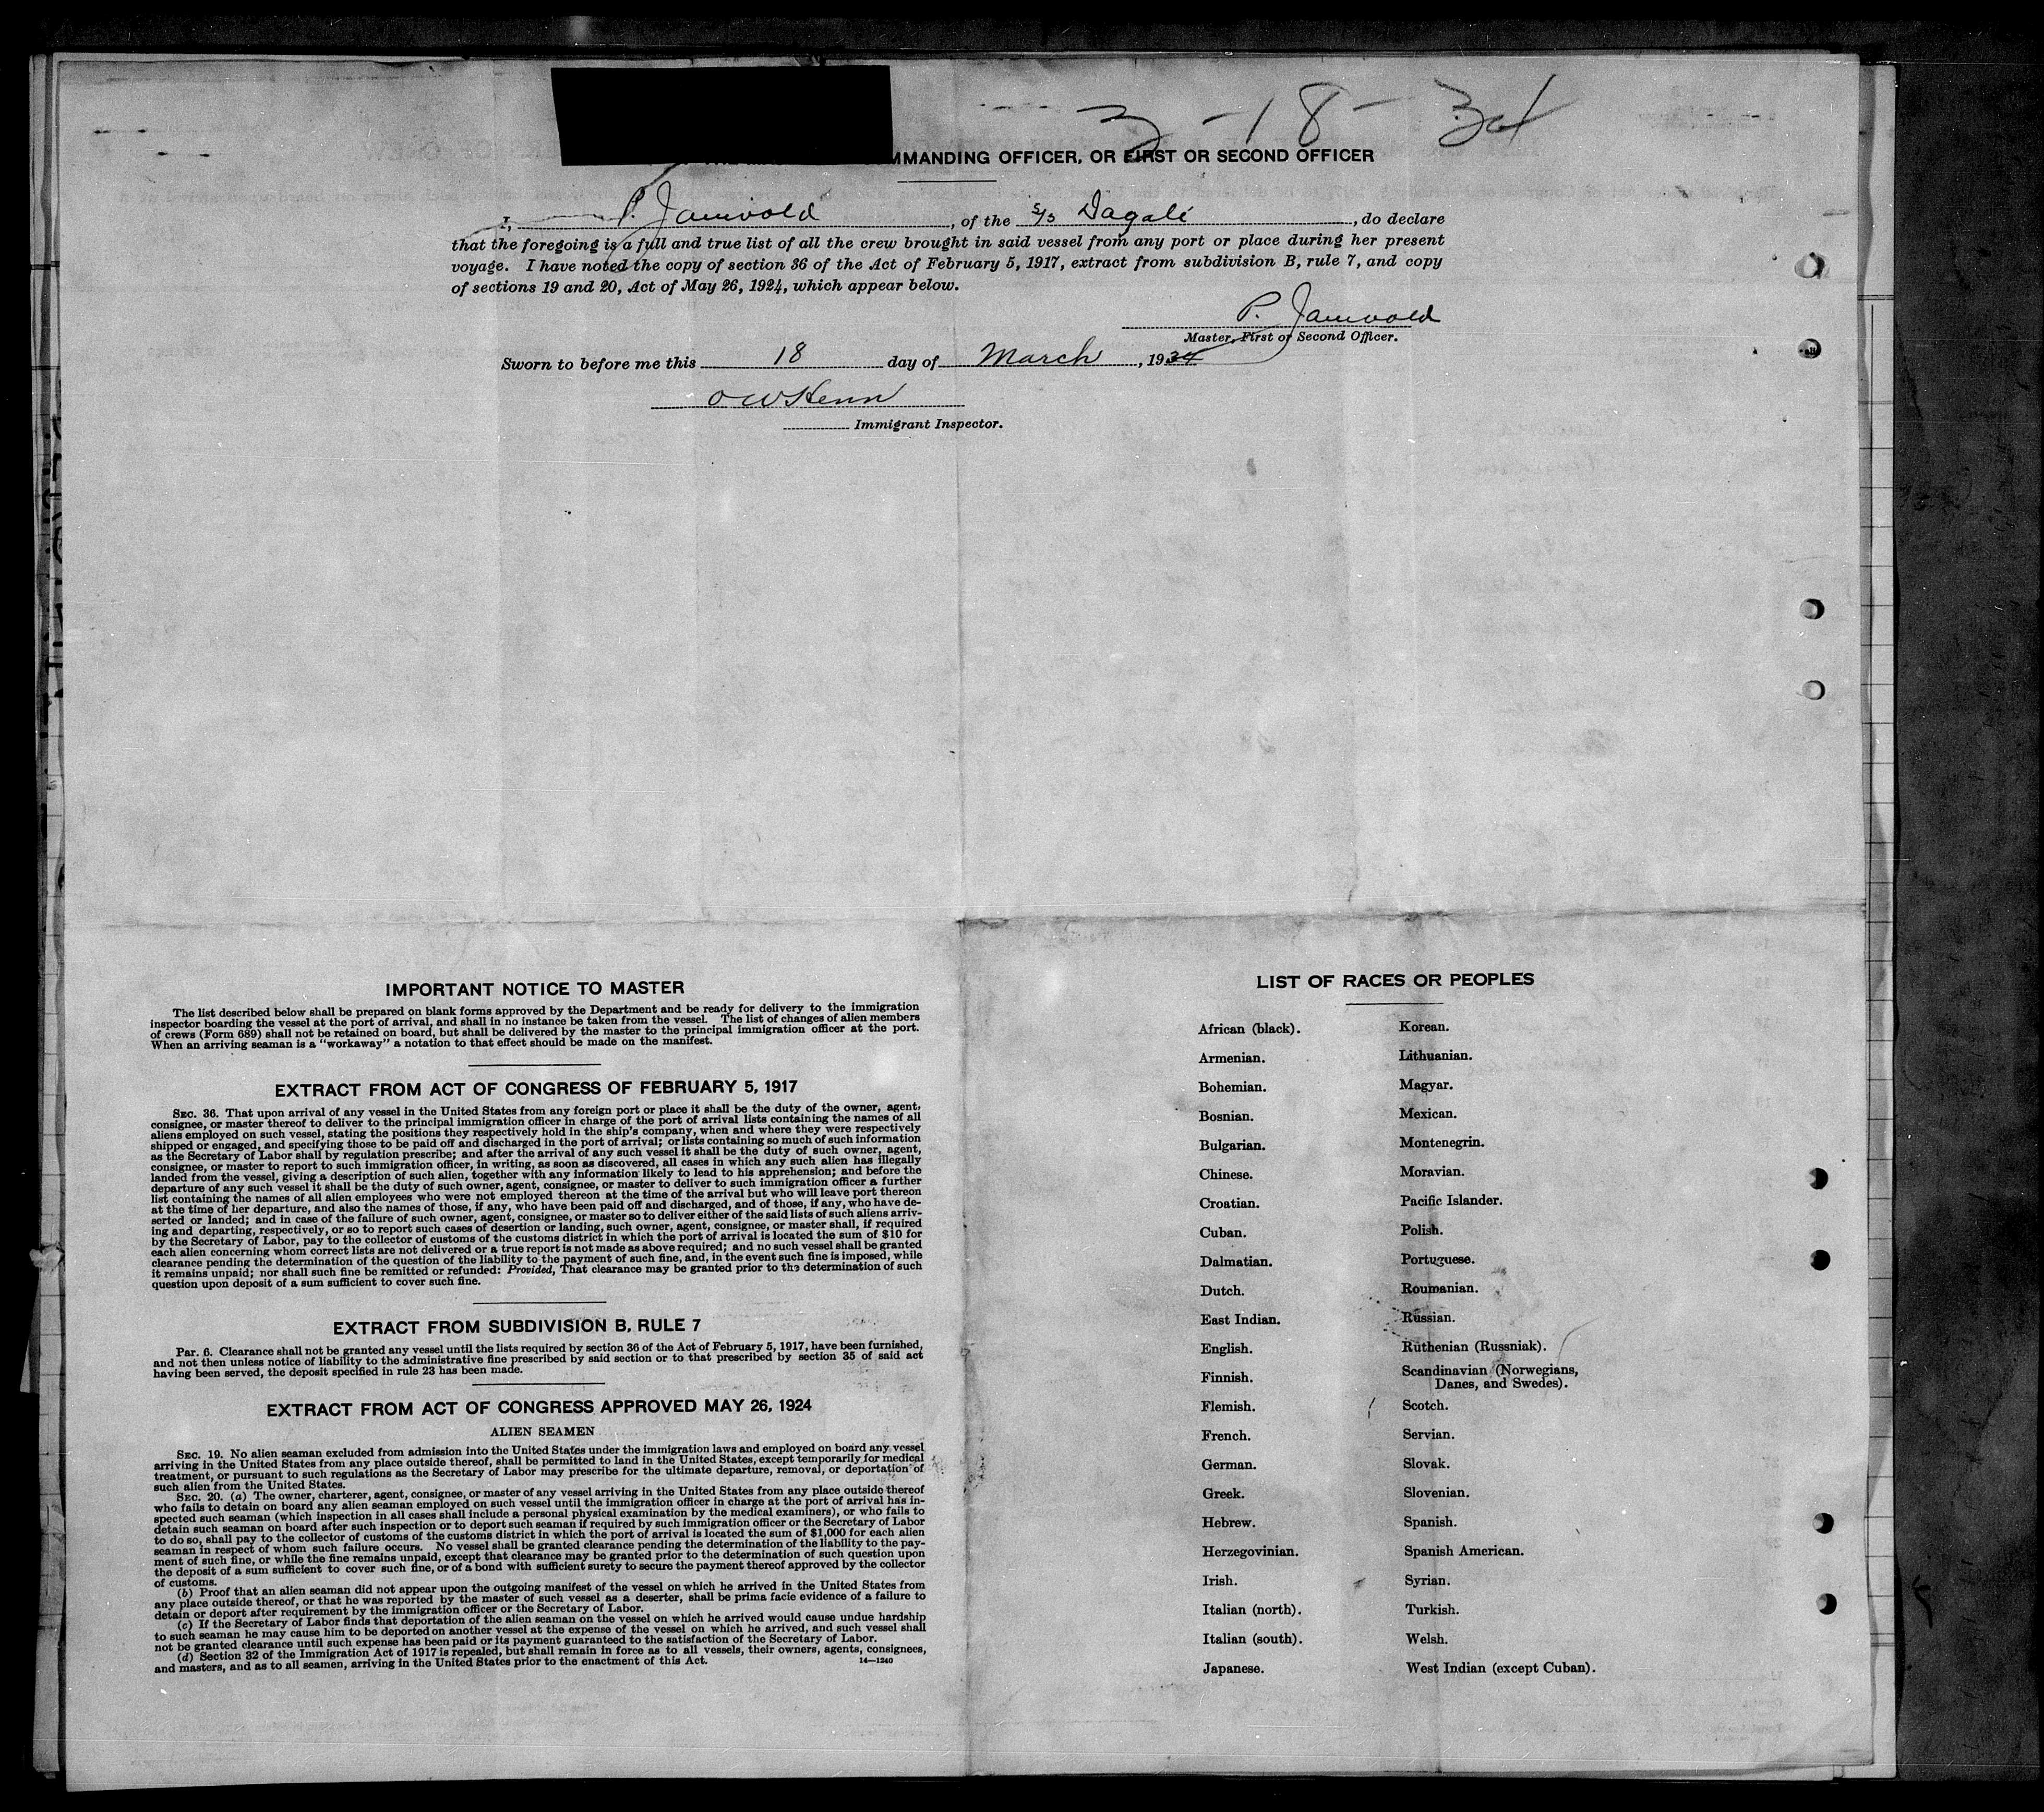 3-18-34
COMMANDING OFFICER, OR FIRST OR SECOND OFFICER
I, P. Jamvold, of the S/S Dagali, do declare
that the foregoing is a full and true list of all the crew brought in said vessel from any port or place during her present
voyage. I have noted the copy of section 36 of the Act of February 5, 1917, extract from subdivision B, rule 7, and copy
of sections 19 and 20, Act of May 26, 1924, which appear below.
P. Jamvold
Master, First or Second Officer.
Sworn to before me this 18 day of March, 1934
O W Henn
Immigrant Inspector.
IMPORTANT NOTICE TO MASTER
The list described below shall be prepared on blank forms approved by the Department and be ready for delivery to the immigration
inspector boarding the vessel at the port of arrival, and shall in no instance be taken from the vessel. The list of changes of alien members
of crews (Form 689) shall not be retained on board, but shall be delivered by the master to the principal immigration officer at the port.
When an arriving seaman is a "workaway" a notation to that effect should be made on the manifest.
EXTRACT FROM ACT OF CONGRESS OF FEBRUARY 5, 1917
SEC. 36. That upon arrival of any vessel in the United States from any foreign port or place it shall be the duty of the owner, agent,
consignee, or master thereof to deliver to the principal immigration officer in charge of the port of arrival lists containing the names of all
aliens employed on such vessel, stating the positions they respectively hold in the ship's company, when and where they were respectively
shipped or engaged, and specifying those to be paid off and discharged in the port of arrival; or lists containing so much of such information
as the Secretary of Labor shall by regulation prescribe; and after the arrival of any such vessel it shall be the duty of such owner, agent,
consignee, or master to report to such immigration officer, in writing, as soon as discovered, all cases in which any such alien has illegally
landed from the vessel, giving a description of such alien, together with any information likely to lead to his apprehension; and before the
departure of any such vessel it shall be the duty of such owner, agent, consignee, or master to deliver to such immigration officer a further
list containing the names of all alien employees who were not employed thereon at the time of the arrival but who will leave port thereon
at the time of her departure, and also the names of those, if any, who have been paid off and discharged, and of those, if any, who have de-
serted or landed; and in case of the failure of such owner, agent, consignee, or master so to deliver either of the said lists of such aliens arriv-
ing and departing, respectively, or so to report such cases of desertion or landing, such owner, agent, consignee, or master shall, if required
by the Secretary of Labor, pay to the collector of customs of the customs district in which the port of arrival is located the sum of $10 for
each alien concerning whom correct lists are not delivered or a true report is not made as above required; and no such vessel shall be granted
clearance pending the determination of the question of the liability to the payment of such fine, and, in the event such fine is imposed, while
it remains unpaid; nor shall such fine be remitted or refunded: Provided, That clearance may be granted prior to the determination of such
question upon deposit of a sum sufficient to cover such fine.
EXTRACT FROM SUBDIVISION B, RULE 7
Par. 6. Clearance shall not be granted any vessel until the lists required by section 36 of the Act of February 5, 1917, have been furnished,
and not then unless notice of liability to the administrative fine prescribed by said section or to that prescribed by section 35 of said act
having been served, the deposit specified in rule 23 has been made.
EXTRACT FROM ACT OF CONGRESS APPROVED MAY 26, 1924
ALIEN SEAMEN
SEC. 19. No alien seaman excluded from admission into the United States under the immigration laws and employed on board any vessel
arriving in the United States from any place outside thereof, shall be permitted to land in the United States, except temporarily for medical
treatment, or pursuant to such regulations as the Secretary of Labor may prescribe for the ultimate departure, removal, or deportation of
such alien from the United States.
SEC. 20. (a) The owner, charterer, agent, consignee, or master of any vessel arriving in the United States from any place outside thereof
who fails to detain on board any alien seaman employed on such vessel until the immigration officer in charge at the port of arrival has in-
spected such seaman (which inspection in all cases shall include a personal physical examination by the medical examiners), or who fails to
detain such seaman on board after such inspection or to deport such seaman if required by such immigration officer or the Secretary of Labor
to do so, shall pay to the collector of customs of the customs district in which the port of arrival is located the sum of $1,000 for each alien
seaman in respect of whom such failure occurs. No vessel shall be granted clearance pending the determination of the liability to the pay-
ment of such fine, or while the fine remains unpaid, except that clearance may be granted prior to the determination of such question upon
the deposit of a sum sufficient to cover such fine, or of a bond with sufficient surety to secure the payment thereof approved by the collector
of customs.
(b) Proof that an alien seaman did not appear upon the outgoing manifest of the vessel on which he arrived in the United States from
any place outside thereof, or that he was reported by the master of such vessel as a deserter, shall be prima facie evidence of a failure to
detain or deport after requirement by the immigration officer or the Secretary of Labor.
(c) If the Secretary of Labor finds that deportation of the alien seaman on the vessel on which he arrived would cause undue hardship
to such seaman he may cause him to be deported on another vessel at the expense of the vessel on which he arrived, and such vessel shall
not be granted clearance until such expense has been paid or its payment guaranteed to the satisfaction of the Secretary of Labor.
(d) Section 32 of the Immigration Act of 1917 is repealed, but shall remain in force as to all vessels, their owners, agents, consignees,
and masters, and as to all seamen, arriving in the United States prior to the enactment of this Act.
14—1240
LIST OF RACES OR PEOPLES
African (black).
Armenian.
Bohemian.
Bosnian.
Bulgarian.
Chinese.
Croatian.
Cuban.
Dalmatian.
Dutch.
East Indian.
English.
Finnish.
Flemish.
French.
German.
Greek.
Hebrew.
Herzegovinian.
Irish.
Italian (north).
Italian (south).
Japanese.
Korean.
Lithuanian.
Magyar.
Mexican.
Montenegrin.
Moravian.
Pacific Islander.
Polish.
Portuguese.
Roumanian.
Russian.
Ruthenian (Russniak).
Scandinavian (Norwegians,
Danes, and Swedes).
Scotch.
Servian.
Slovak.
Slovenian.
Spanish.
Spanish American.
Syrian.
Turkish.
Welsh.
West Indian (except Cuban).